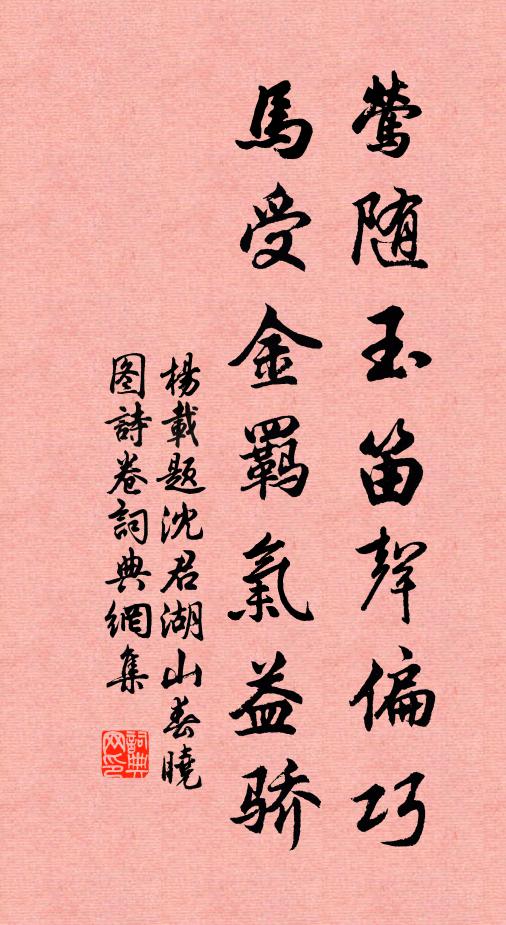 鶯随玉笛聲偏巧
馬受金羈氣益骄
楊載题沈君湖山春曉
图詩卷詞典網集
詞典網印